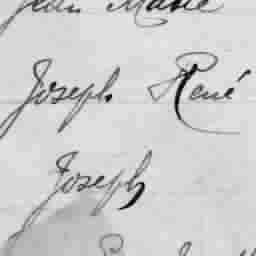 Jean Marie
Joseph René
Joseph